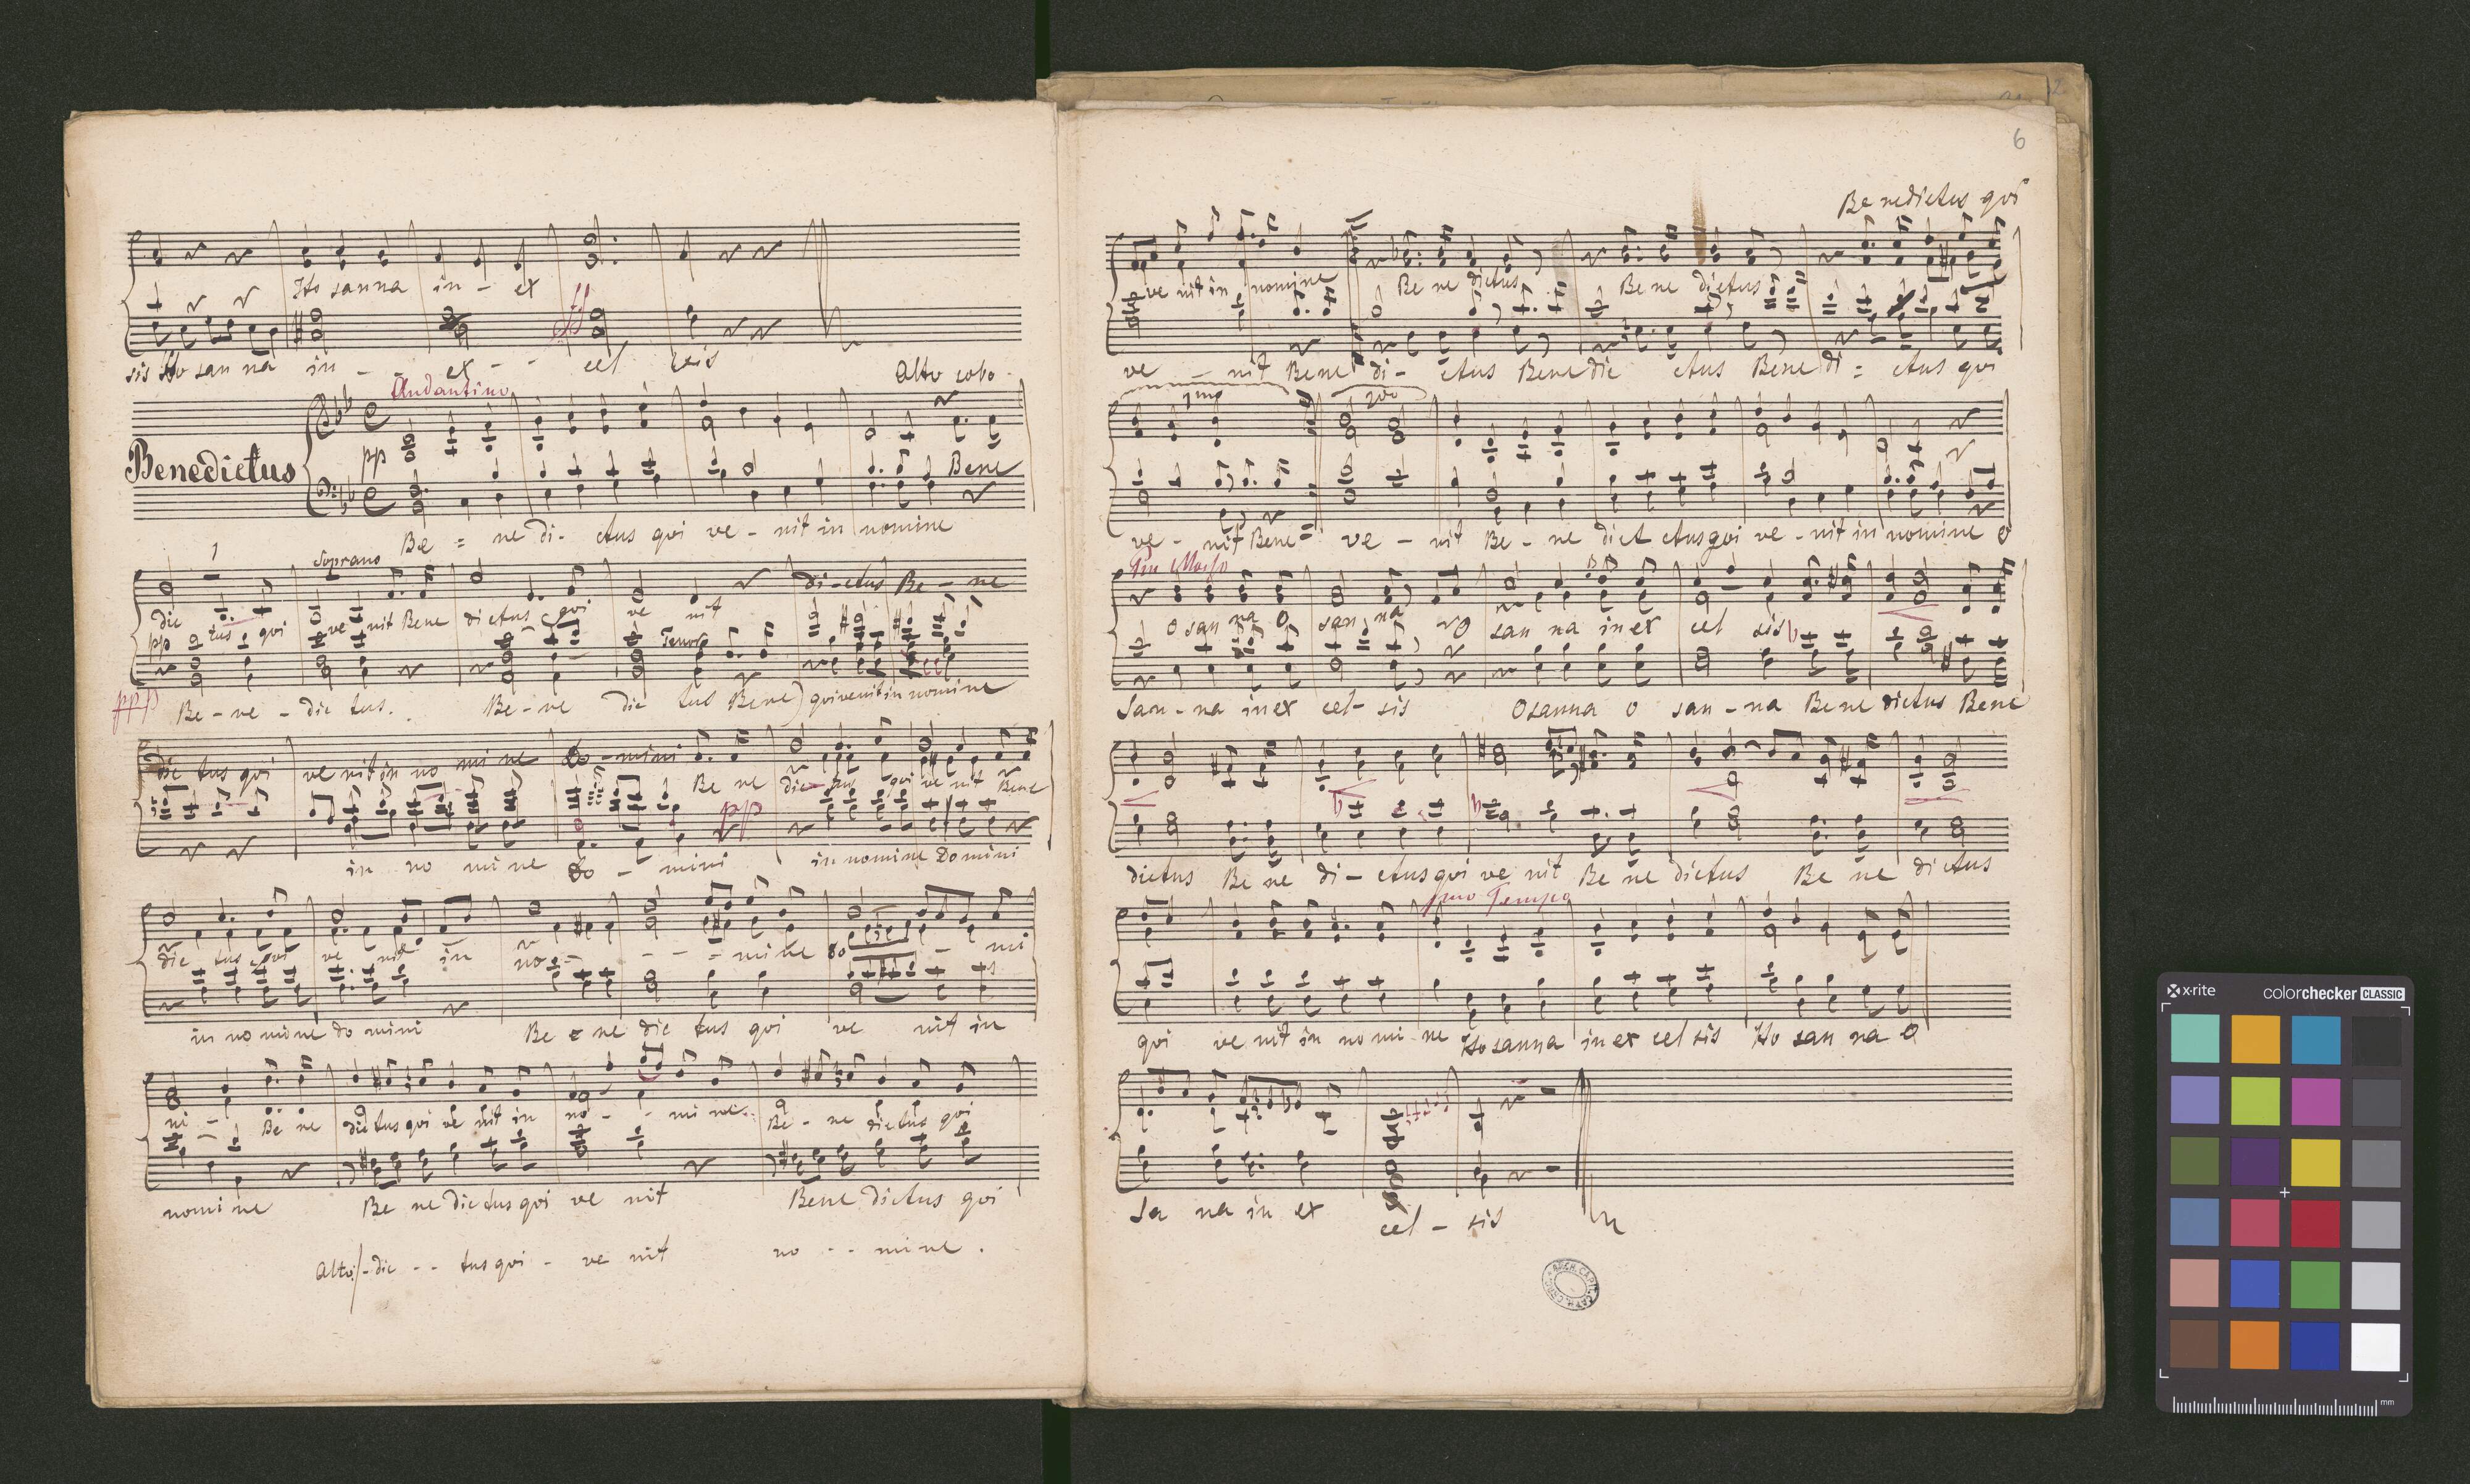 Ho sanna in - ex
ff
sis Ho san na in - - ex - - cel sis
Alto solo
Andantino
pp
Bene
Benedictus
Be = ne di - ctus qui ve - nit in nomine
1 Soprano
di - ctus Be - ne
dic tus qui ve nit Bene dictus qui ve nit
pp
Tenor
ppp
Be - ne - dic tus. Be - ne dic tus Bene) qui venit in nomine
dic tus qui ve nit in no mi ne Do - mini
Be ne dic tus qui ve nit Bene
pp
in no mi ne Do - mini in nomine Domini
dic tus qui ve nit in no - - - - = mine Do - mi
in no mine do mini Be = ne dic tus qui ve nit in
ni - Be ne dic tus qui ve nit in no - - mi ne. Be - ne dictus qui
nomi ne Be ne dic tus qui ve nit Bene dictus qui
Alto/ - dic - - tus qui - ve nit no - - mine .
6
Benedictus qui
ve nit in nomine Be ne dictus Be ne dictus
ve - nit Bene di - ctus Bene dic ctus Bene di = ctus qui
1mo 2do
ve - nit Bene = ve - nit Be - ne dict ctus qui ve - nit in nomine O
Piu Mosso
O san na O san na O san na in ex cel sis
San - na in ex cel - sis O sanna o san - na Be ne dictus Bene
dictus Be ne di - ctus qui ve nit Be ne dictus Be ne dictus
pmo Tempo
qui ve nit in no mi ne Ho sanna in ex cel sis Ho san na O
Sa na in ex cel - sis
ARCH. CAPIT. CATH. CRAC.
x·rite colorchecker CLASSIC
mm